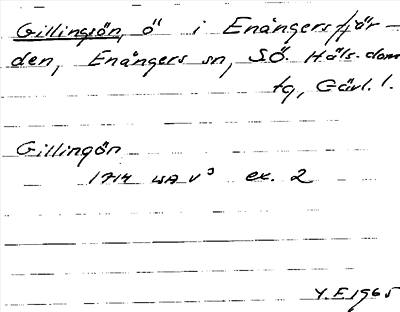 Gillingsön, ö i Enångersfjär-
den, Enångers sn, SÖ. Häls. dom
tg, Gävl. l.
Gillingön
1714 LSA V³ ex. 2
Y.E. 1965